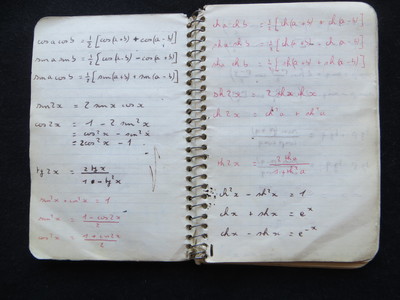 cos a cos b = 1/2 [cos(a+b) + cos(a-b)]
sin a sin b = 1/2 [cos(a-b) - cos(a+b)]
sin a cos b = 1/2 [sin(a+b) + sin(a-b)]
sin 2x = 2 sin x cos x
cos 2x = 1 - 2 sin²x
= cos²x - sin²x
= 2cos²x - 1
tg 2x = 2tgx / 1 - tg²x
sin²x + cos²x = 1
sin²x = 1 - cos 2x / 2
cos²x = 1 + cos 2x / 2
ch a ch b = 1/2 [ch(a+b) + ch(a-b)]
= 1/2 [ch(a+b)
= 1/2 [sh(a+b) + sh(a-b)]
sh 2x = 2 shx chx
ch 2x = ch²x + sh²x
ch²x - sh²x = 1
chx + shx = e^x
chx - shx = e^-x